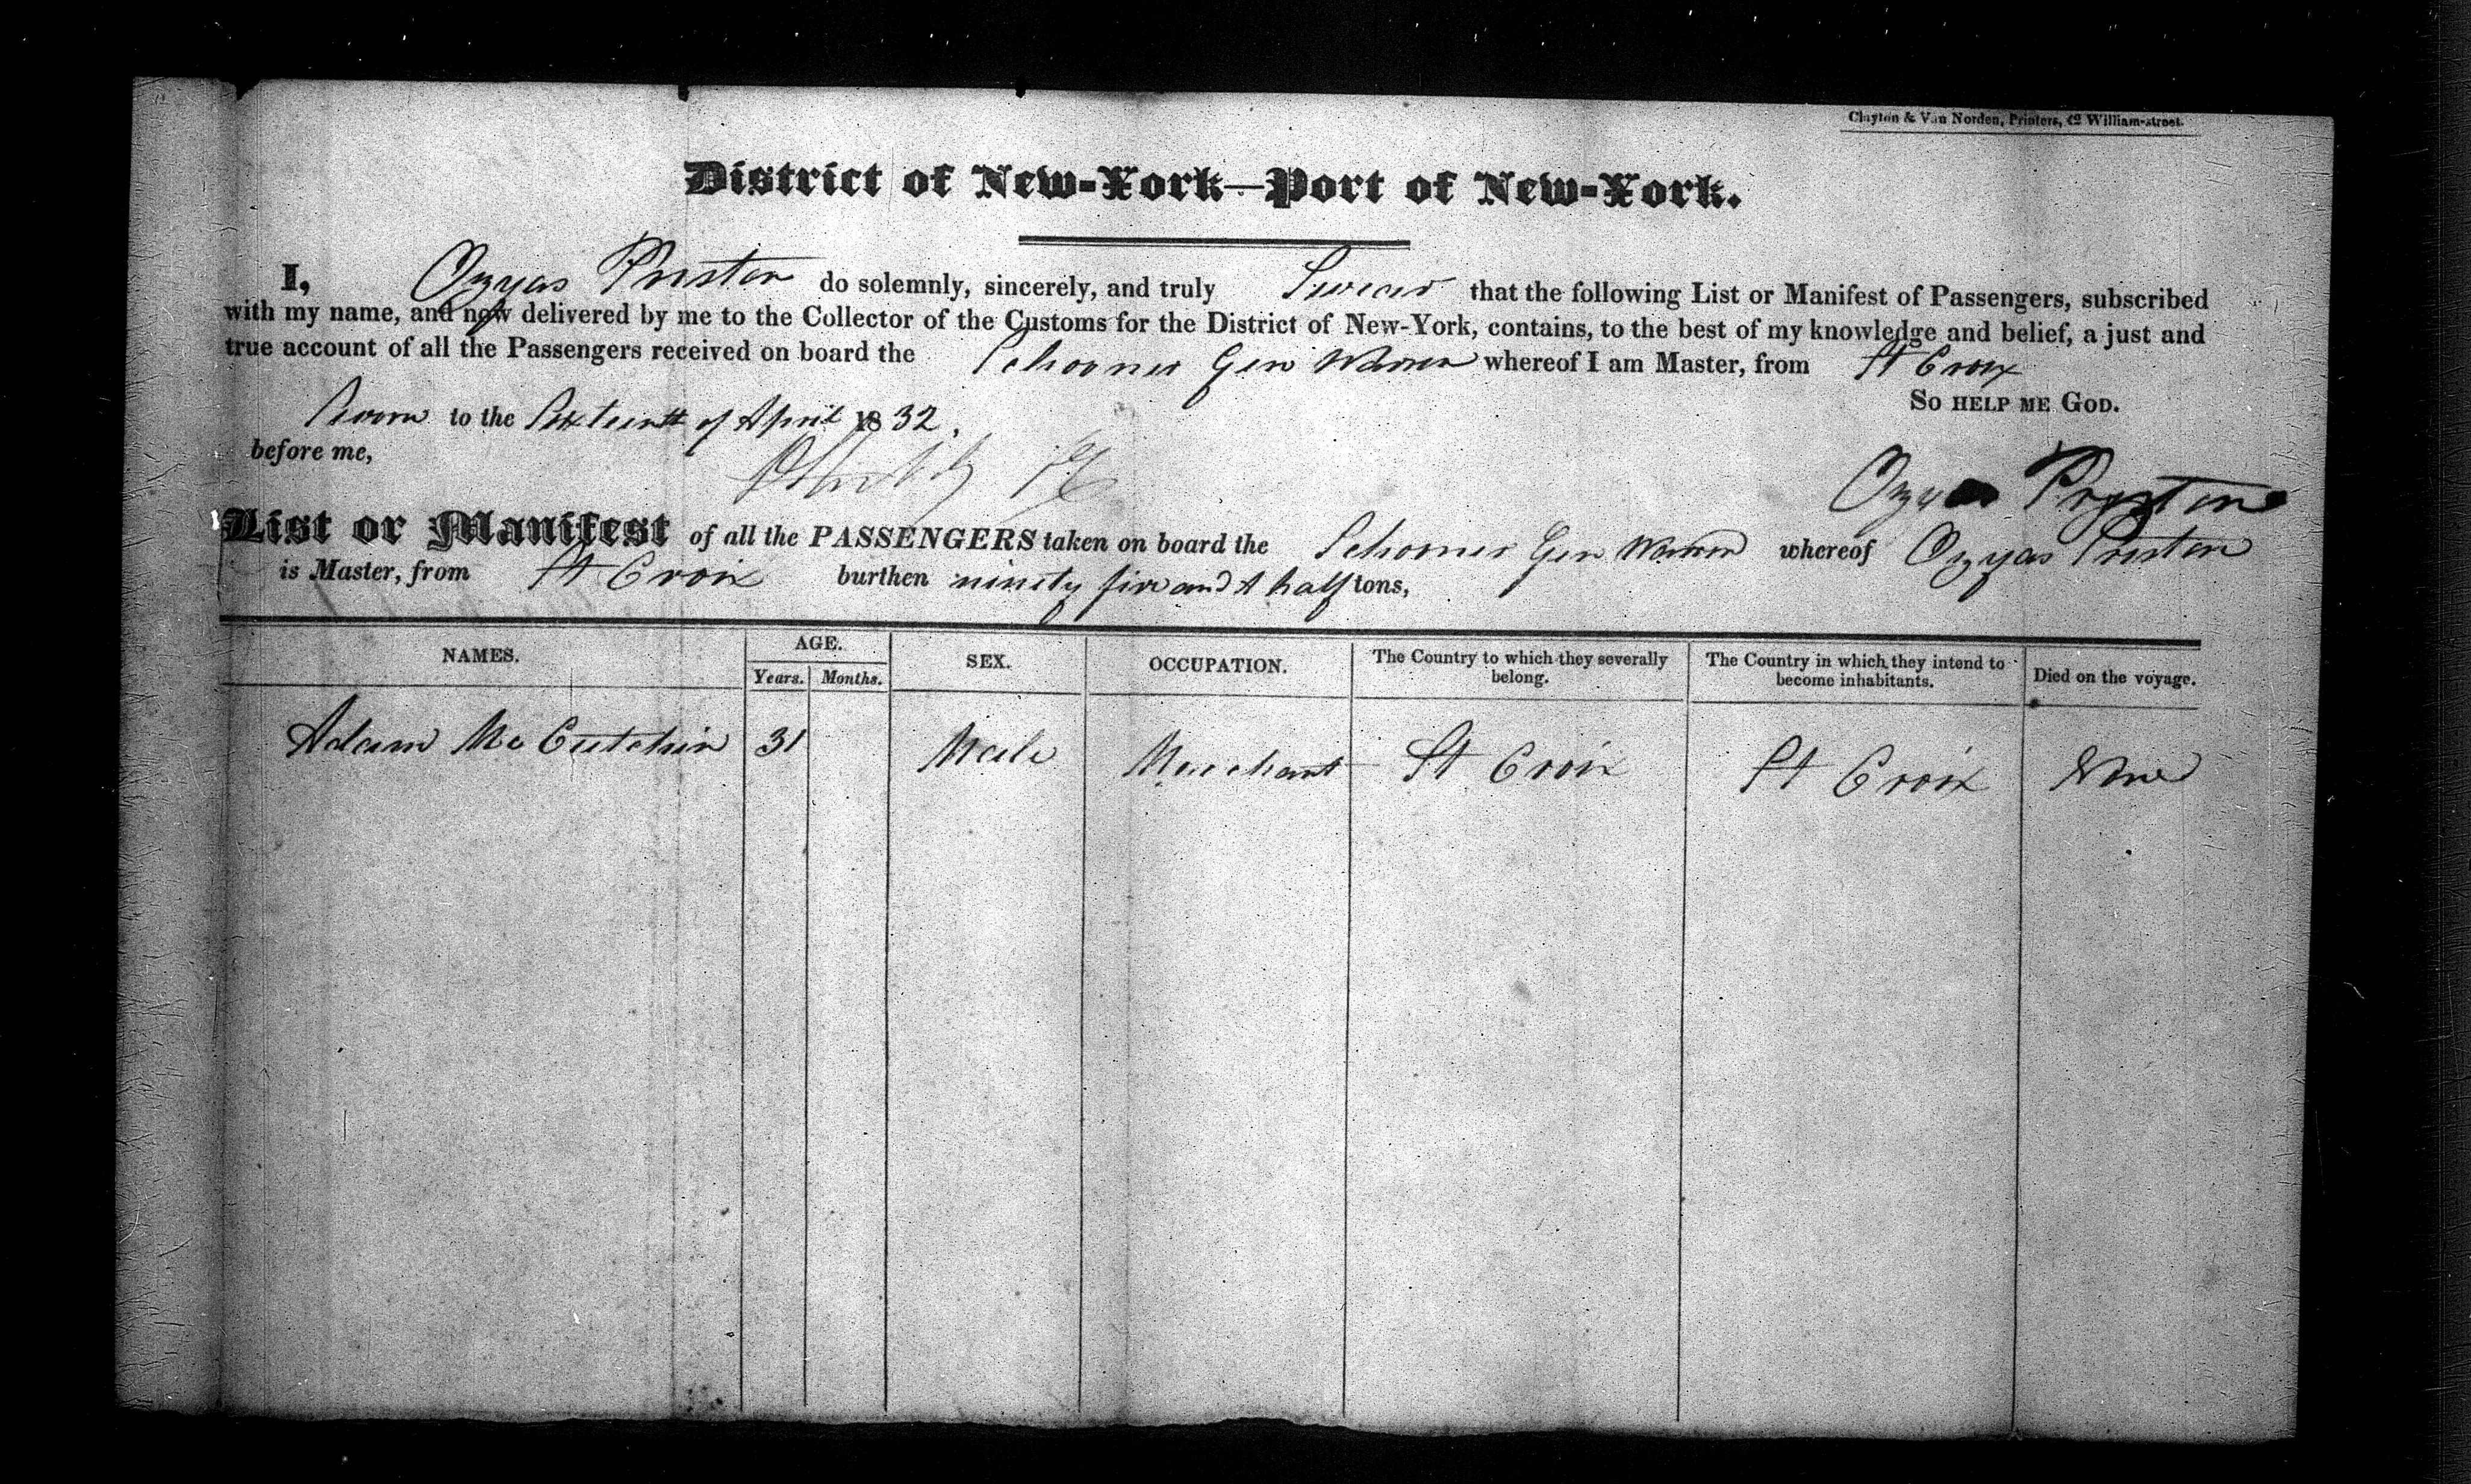 Clayton & Van Norden, Printers, 42 William-street.
District of New-York—Port of New-York.
I, Ozyas Preston do solemnly, sincerely, and truly Swear that the following List or Manifest of Passengers, subscribed
with my name, and now delivered by me to the Collector of the Customs for the District of New-York, contains, to the best of my knowledge and belief, a just and
true account of all the Passengers received on board the Schooner Gen Warren whereof I am Master, from St Croix
So help me God.
Sworn to the Sixteenth of April 1832,
before me,
Ozyas Preston
List or Manifest of all the PASSENGERS taken on board the Schooner Gen Warren whereof Ozyas Preston
is Master, from St Croix burthen ninety five and A half tons,
NAMES. AGE. SEX. OCCUPATION. The Country to which they severally belong. The Country in which they intend to become inhabitants. Died on the voyage.
Years. Months.
Adam Mc Cutchin 31 Male Merchant St Croix St Croix None